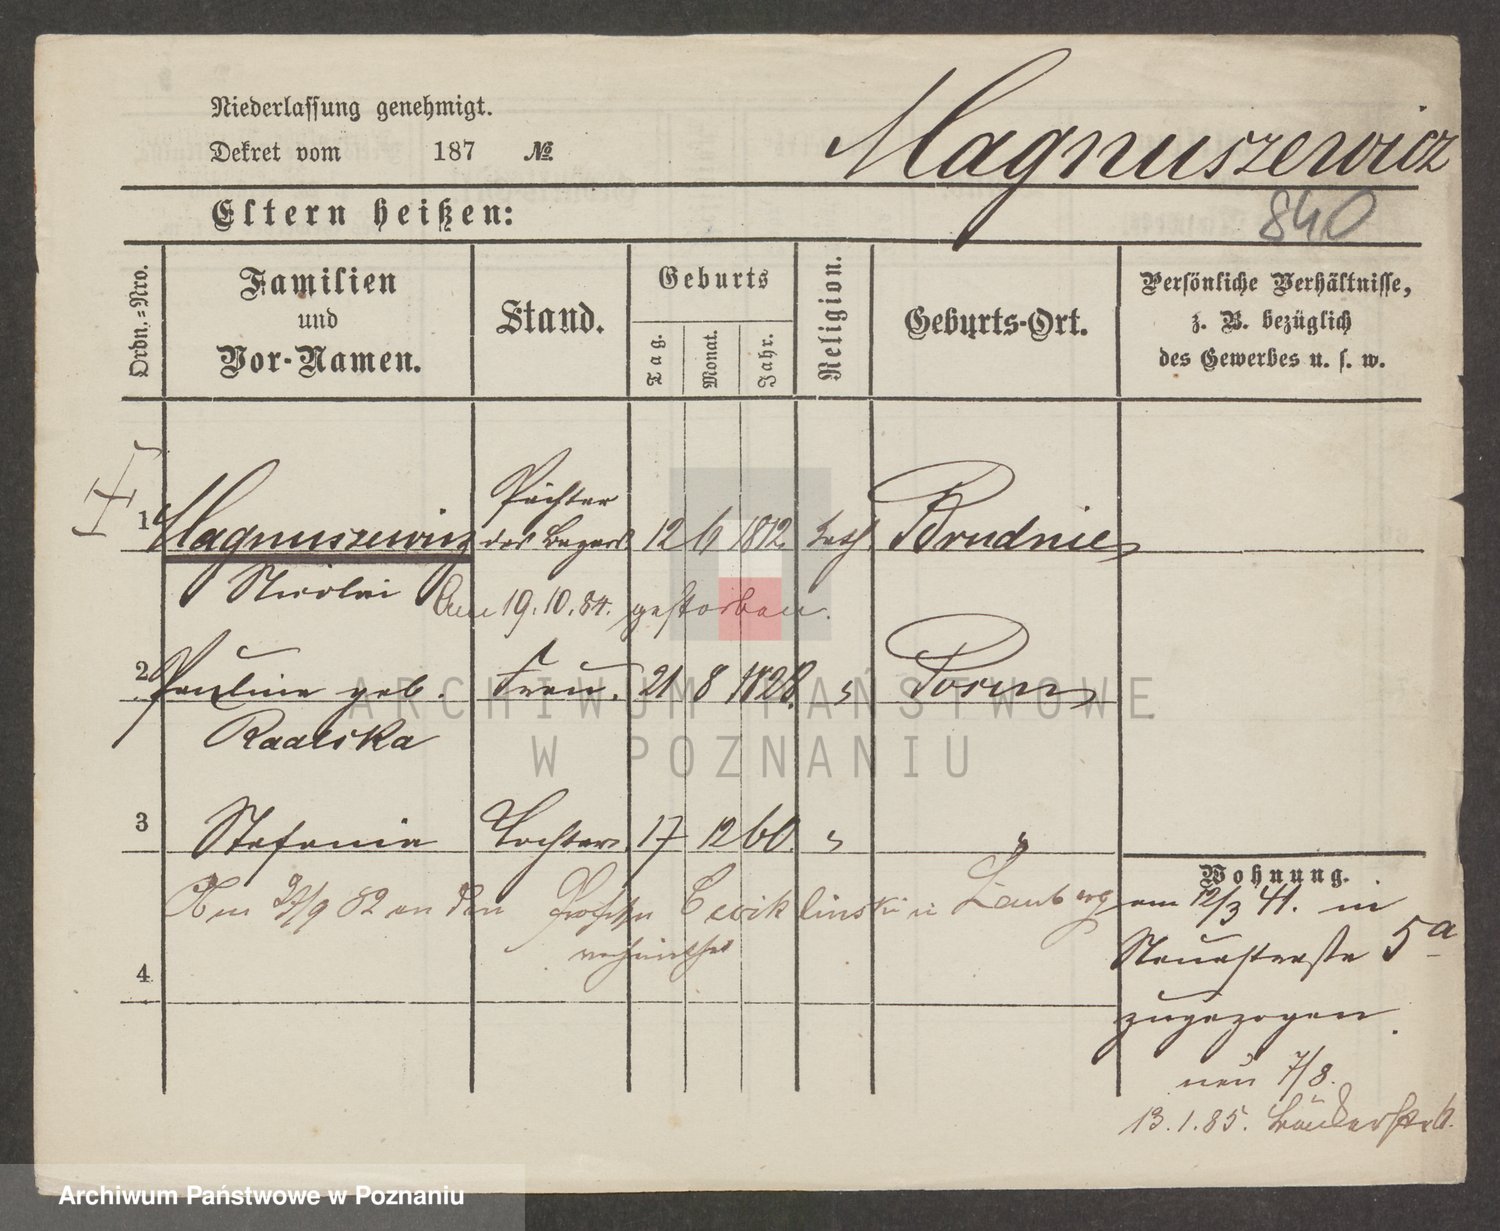 Niederlassung genehmigt.
Dekret vom 187 №
Magnuszewicz
840
Eltern heißen:
Ordn.=Nro.
Familien
und
Vor-Namen.
Stand.
Geburts
Tag.
Monat.
Jahr.
Religion.
Geburts-Ort.
Persönliche Verhältnisse,
z. B. bezüglich
des Gewerbes u. s. w.
Pächter
1 Magnuszewicz des Bazars 12 6 1812 kath. Brudnie
Nicolai Am 19.10.84. gestorben.
2 Pauline geb. Frau. 21 8 1828. " Posen
Radeska
3 Stefanie Tochter 17 12 60. " "
Wohnung.
Am 27/9 82 an den Cwiklinski in Lemberg
verheirathet
4
am 12/3 41. in
Neuestraße 5a
zugezogen.
neu 7/8.
13.1.85. Bäckerstr
ARCHIWUM PAŃSTWOWE
W POZNANIU
Archiwum Państwowe w Poznaniu